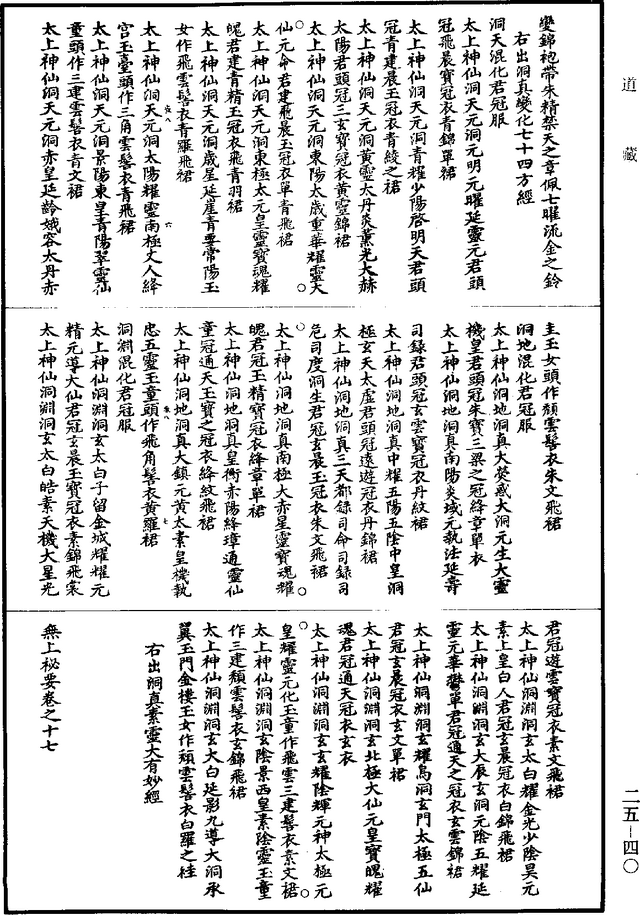 道藏
變錦袍帶朱精禁天之章佩七曜流金之鈴
右出洞真變化七十四方經
洞天混化君冠服
太上神仙洞天元洞元明元曜延靈元君頭
冠飛晨寶冠衣青錦單裙
太上神仙洞天元洞青耀少陽啓明天君頭
冠青建晨玉冠衣青綾之裙
太上神仙洞天元洞黃靈太丹炎熏光大赫
太陽君頭冠三玄寶冠衣黃靈錦裙
太上神仙洞天元洞東陽太歲重華耀靈大
仙元命君建飛晨玉冠衣單青飛裙
太上神仙洞天元洞東極太元皇靈寶魂耀
魄君建青精玉冠衣飛青羽裙
太上神仙洞天元洞歲星延崖青要常陽玉
女作飛雲髻衣青羅飛裙
太上神仙洞天元洞太陽耀靈南極丈人絳
宮玉臺頭作三角雲髻衣青飛裙
太上神仙洞天元洞景陽東皇青陽翠靈仙
童頭作三建雲髻衣青文裙
太上神仙洞天元洞赤皇延齡娥容太丹赤
圭玉女頭作頹雲髻衣朱文飛裙
洞地混化君冠服
太上神仙洞地洞真大熒惑大洞元生大靈
機皇君頭冠朱寶三梁之冠絳章單衣
太上神仙洞地洞真南陽炎域元執法延壽
司錄君頭冠玄雲寶冠衣丹紋裙
太上神仙洞地洞真中耀五陽五陰中皇洞
極玄天太虛君頭冠遠遊冠衣丹錦裙
太上神仙洞地洞真三天都錄司命司錄司
危司度洞生君冠玄晨玉冠衣朱文飛裙
太上神仙洞地洞真南極大赤星靈寶魂耀
魄君冠玉精寶冠衣絳章單裙
太上神仙洞地洞真皇衡赤陽絳璋通靈仙
童冠通天玉寶之冠衣絳紋飛裙
太上神仙洞地洞真大鎮元黃太素皇機執
忠五靈玉童頭作飛角髻衣黃羅裙
洞淵混化君冠服
太上神仙洞淵洞玄太白子留金城耀耀元
精元導大仙君冠玄晨玉寶冠衣素錦飛裳
太上神仙洞淵洞玄太白皓素天機大星光
君冠遊雲寶冠衣素文飛裙
太上神仙洞淵洞玄太白耀金光少陰昊元
素上皇白人君冠玄晨冠衣白錦飛裙
太上神仙洞淵洞玄大辰玄洞元陰五耀延
靈元華鬱單君冠通天之冠衣玄雲錦裙
太上神仙洞淵洞玄耀鳥洞玄門太極五仙
君冠玄晨冠衣玄文單裙
太上神仙洞淵洞玄北極大仙元皇寶魄耀
魂君冠通天冠衣玄衣
太上神仙洞淵洞玄玄耀陰輝元神太極元
皇耀靈元化玉童作飛雲三建髻衣素文裙
太上神仙洞淵洞玄陰景西皇素陰靈玉童
作三建頹雲髻衣玄錦飛裙
太上神仙洞淵洞玄太白延影九導大洞承
翼玉門金樓玉女作頹雲髻衣白羅之袿
右出洞真素靈大有妙經
無上秘要卷之十七
二五—四〇